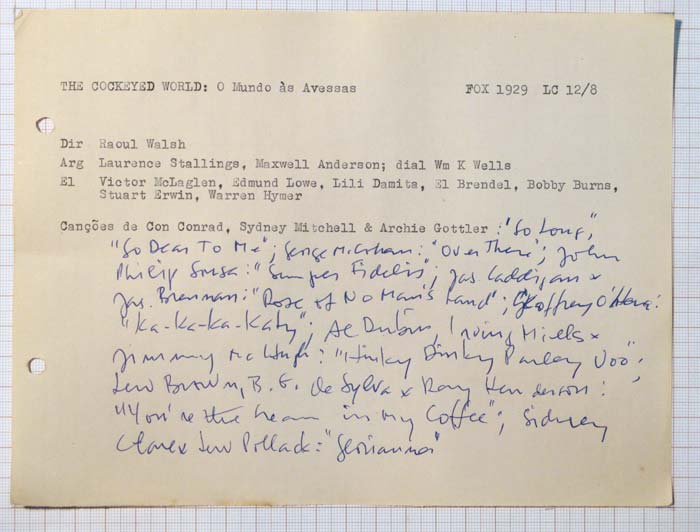 THE COCKEYED WORLD: O Mundo às Avessas FOX 1929 LC 12/8
Dir Raoul Walsh
Arg Laurence Stallings, Maxwell Anderson; dial Wm K Wells
El Victor McLaglen, Edmund Lowe, Lili Damita, El Brendel, Bobby Burns,
Stuart Erwin, Warren Hymer
Canções de Con Conrad, Sydney Mitchell & Archie Gottler: "So Long",
"So Dear To Me"; George M. Cohan: "Over There"; John
Philip Sousa: "Semper Fidelis"; Jas. Caddigan x
Jas. Brennan: "Rose of No Man's Land"; Geoffrey O'Hara:
"Ka-Ka-Ka-Katy"; Al Dubin, Irving Mills x
Jimmy McHugh: "Hinky Dinky Parley Voo";
Lew Brown, B. G. de Sylva x Ray Henderson:
"You're the Cream in my Coffee"; Sidney
Clare x Lew Pollack: "Glorianna"